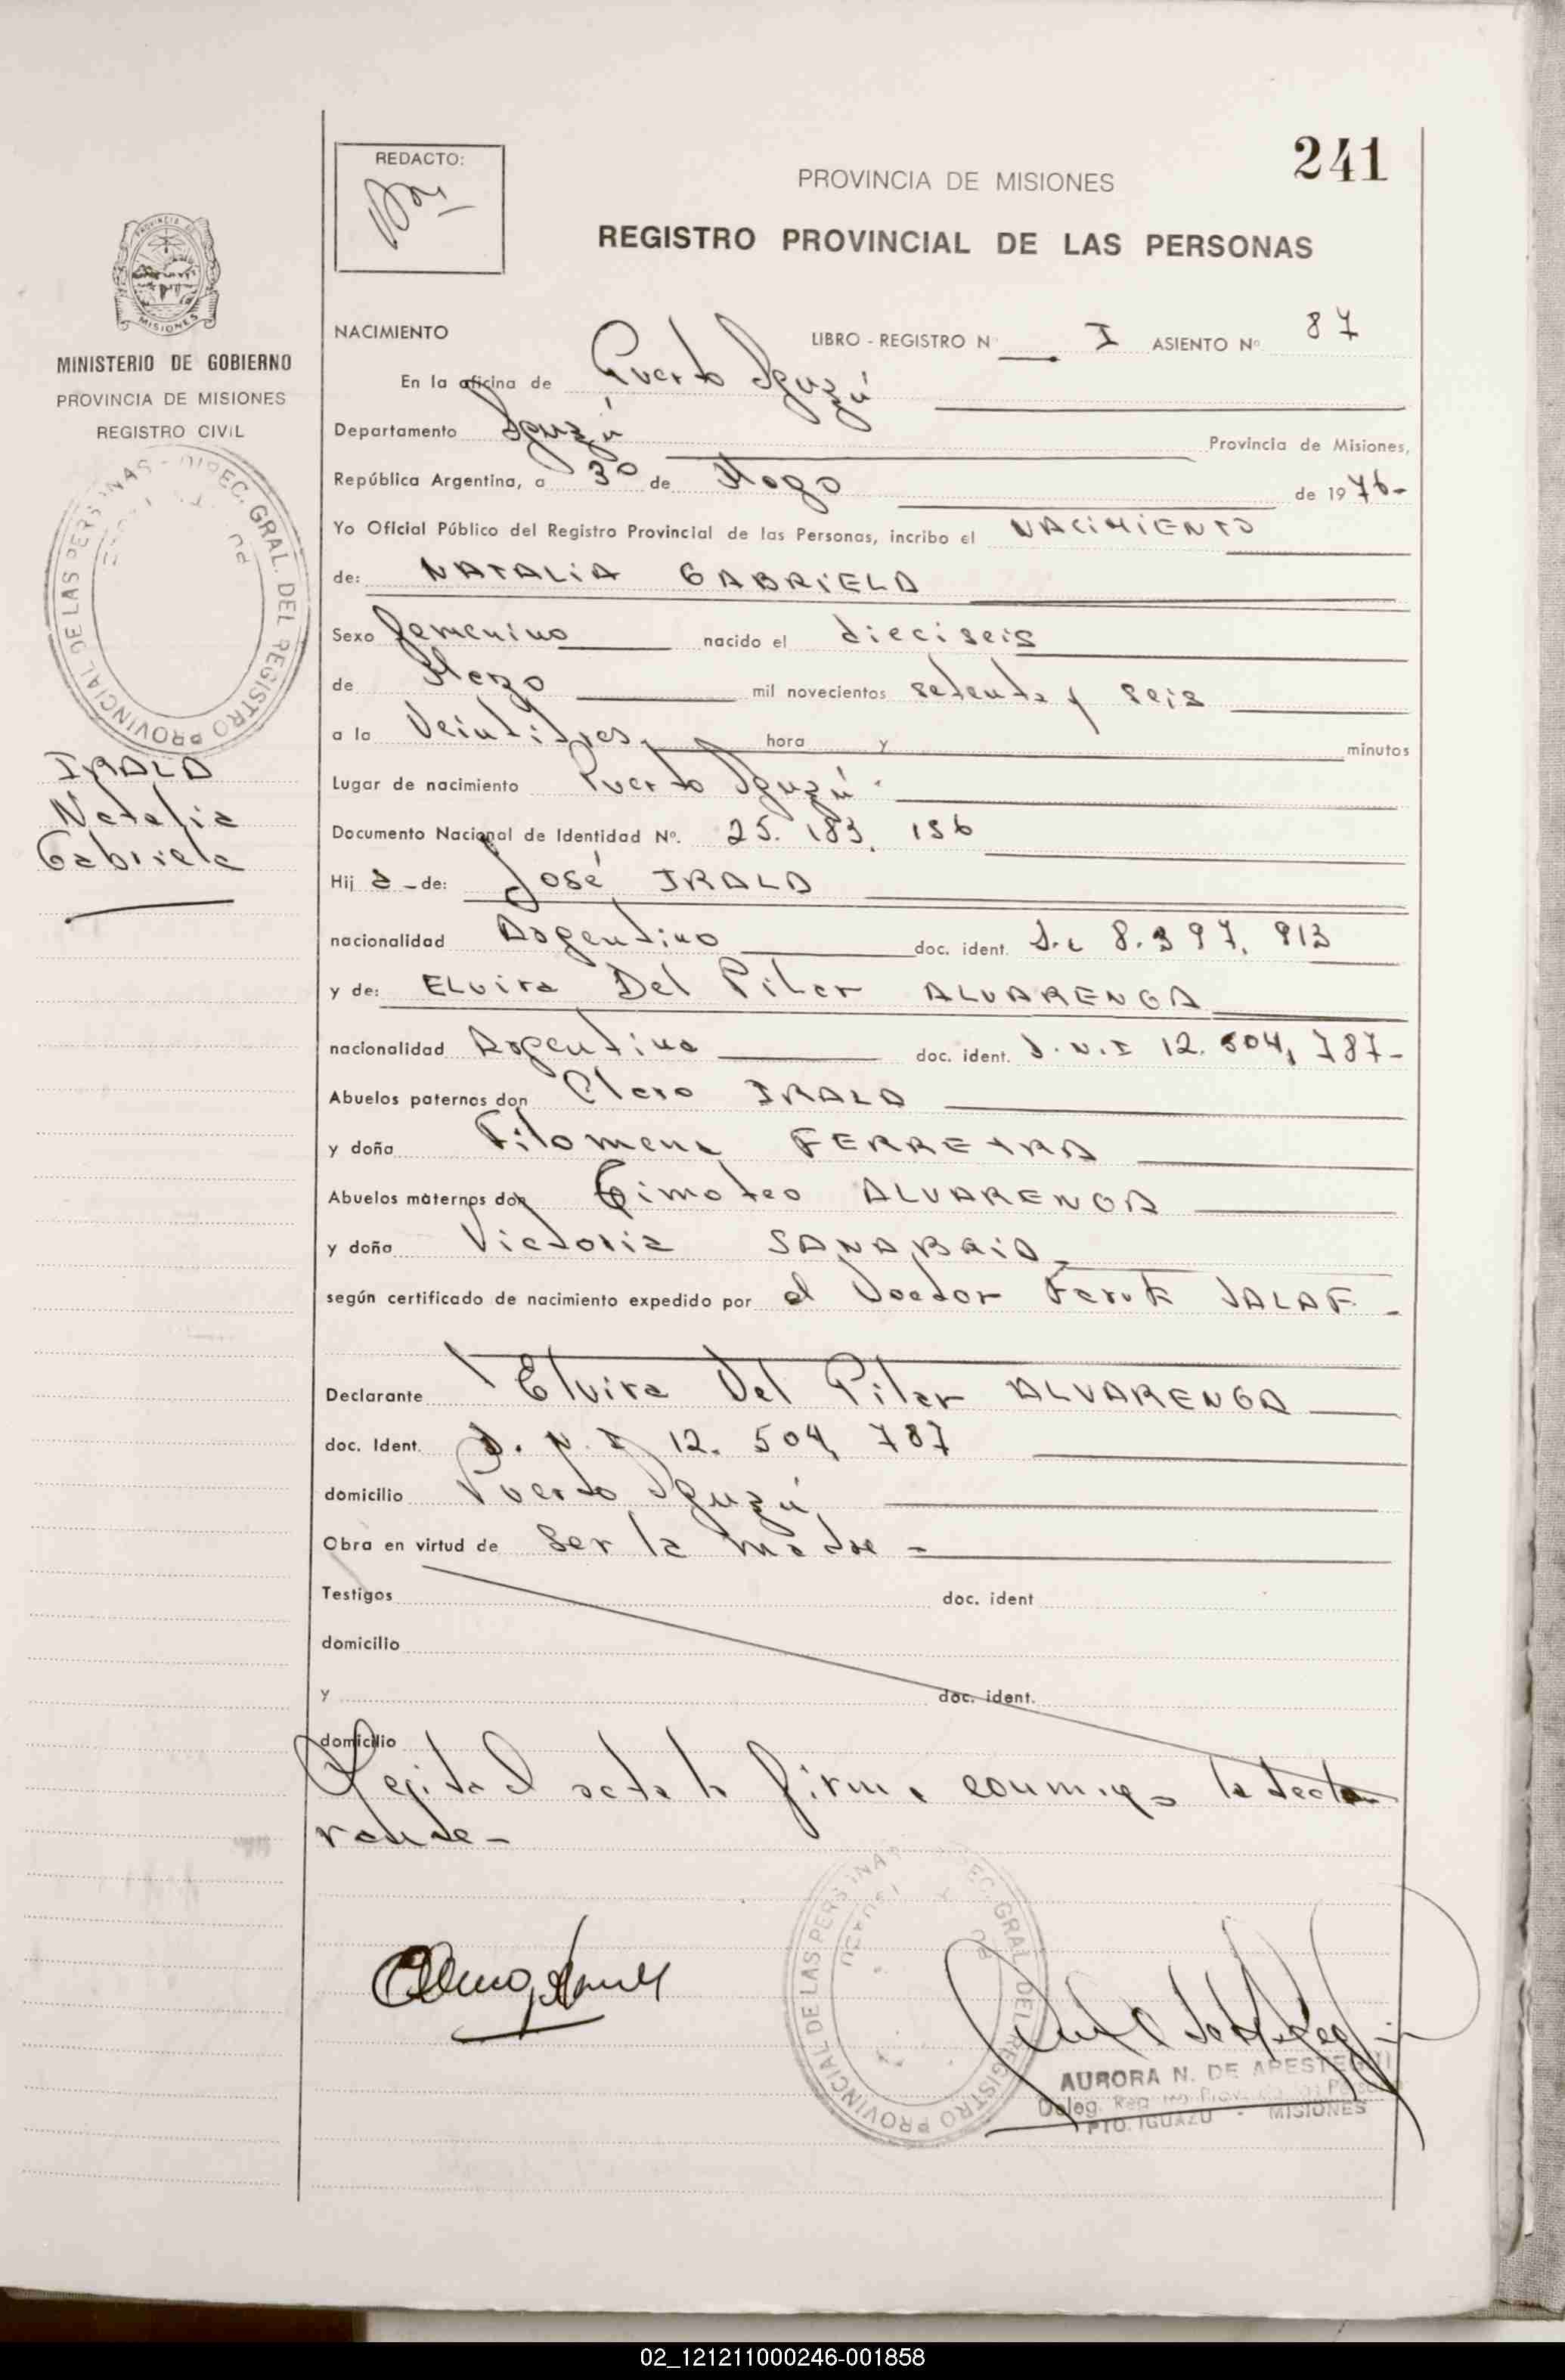 241
REDACTO:
PROVINCIA DE MISIONES
REGISTRO PROVINCIAL DE LAS PERSONAS
MISIONES
MINISTERIO DE GOBIERNO
PROVINCIA DE MISIONES
REGISTRO CIVIL
DIREC. GRAL. DEL REGISTRO PROVINCIAL DE LAS PERSONAS
IRALA
Natalia
Gabriela
NACIMIENTO LIBRO - REGISTRO N° I ASIENTO N° 87
En la oficina de Puerto Iguazú
Departamento Iguazú Provincia de Misiones,
República Argentina, a 30 de Mayo de 1976-
Yo Oficial Público del Registro Provincial de las Personas, incribo el NACIMIENTO
de: NATALIA GABRIELA
Sexo femenino nacido el dieciseis
de mil novecientos setenta y seis
a la Veintitres hora y minutos
Lugar de nacimiento Puerto Iguazú.
Documento Nacional de Identidad N°. 25.183.156
Hij a - de: José IRALA
nacionalidad Argentino doc. ident. 8.397.913
y de: ELvira Del Pilar ALVARENGA
nacionalidad Argentina doc. ident. D.N.I 12.504,787-
Abuelos paternos don Claro IRALA
y doña Filomena FERREYRA
Abuelos maternos don Timoteo ALVARENGA
y doña Victoria SANABRIA
según certificado de nacimiento expedido por el Doctor Faruk JALAF -
Declarante Elvira Del Pilar ALVARENGA
doc. Ident. D.N.I 12.504,787
domicilio Puerto Iguazú
Obra en virtud de ser la madre -
Testigos doc. ident
domicilio
y doc. ident.
domicilio
Leida el acta la firma conmigo la decla
rante-
DIREC. GRAL. DEL REGISTRO PROVINCIAL DE LAS PERSONAS
AURORA N. DE APESTEGUI
Deleg. Reg.
PTO. IGUAZU - MISIONES
02_121211000246-001858